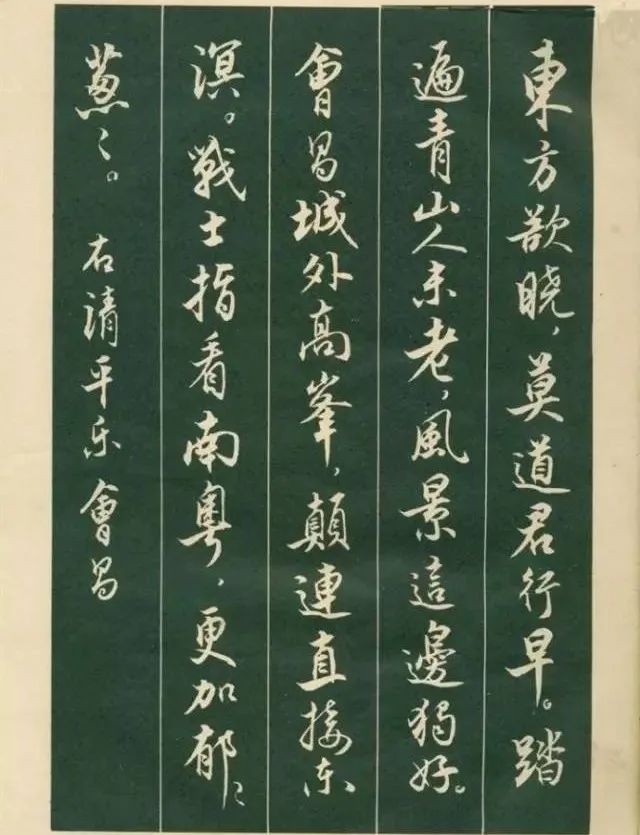 東方欲曉，莫道君行早。踏
遍青山人未老，風景這邊獨好。
會昌城外高峯，顛連直接东
溟。戰士指看南粵，更加郁〻
葱〻。
右清平乐會昌